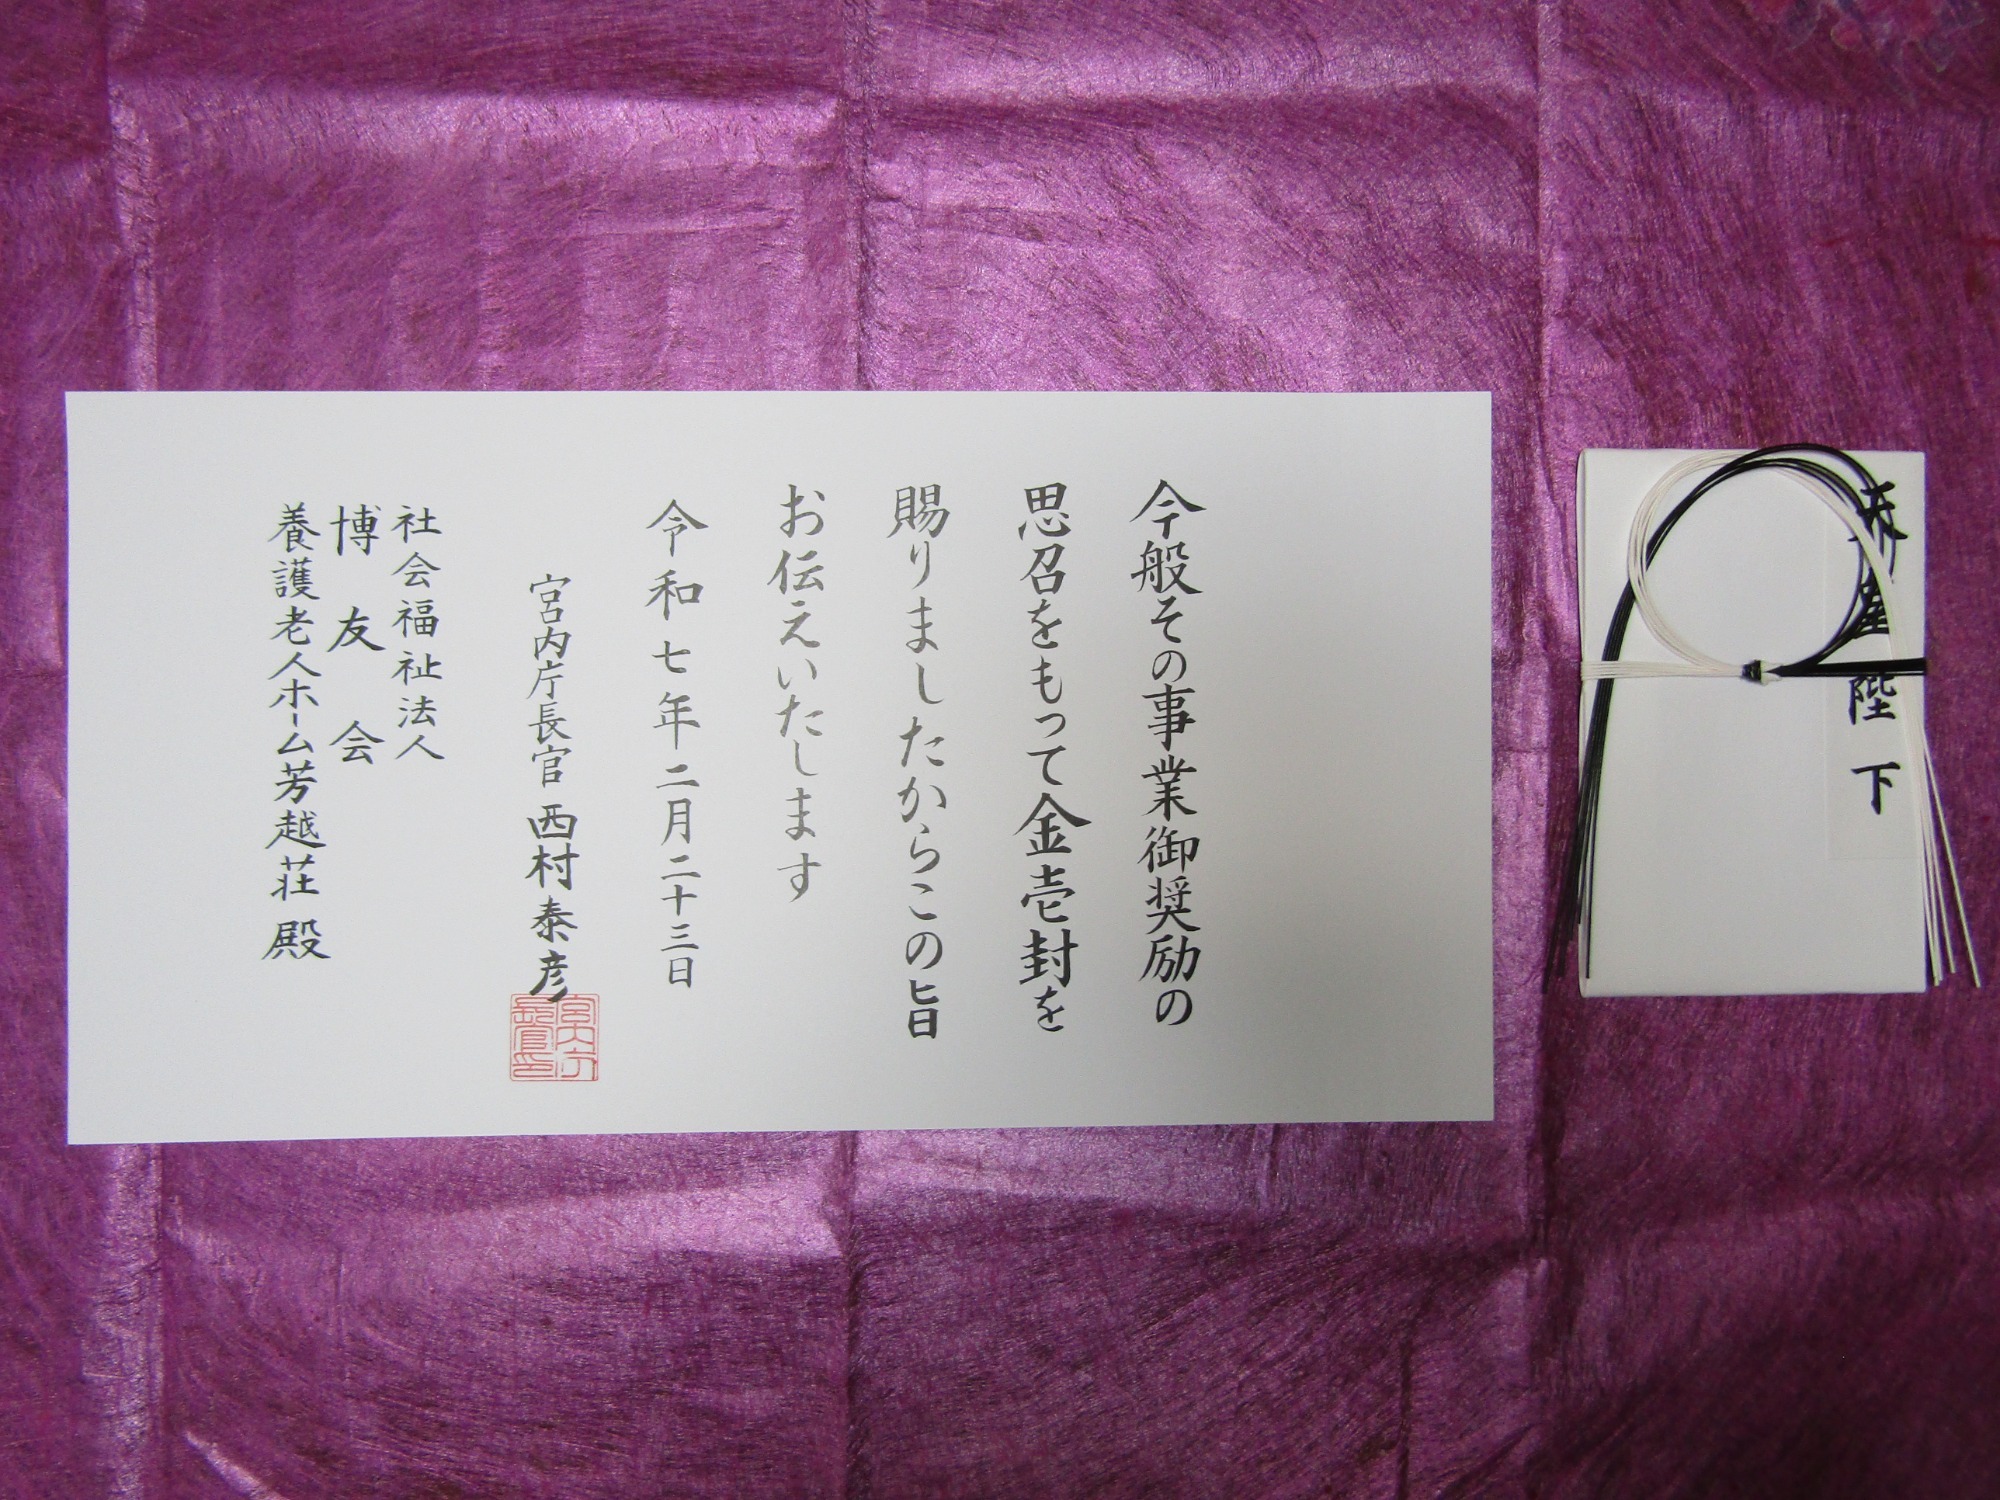 今般その事業御奨励の
思召をもって金壱封を
賜りましたからこの旨
お伝えいたします
令和七年二月二十三日
宮内庁長官 西村泰彦
宮内庁
長官印
社会福祉法人
博友会
養護老人ホーム芳越荘 殿
天皇陛下